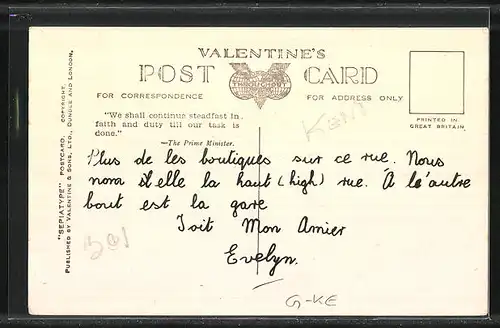 VALENTINE'S
POST CARD
THROUGHOUT
FOR CORRESPONDENCE
FOR ADDRESS ONLY
"We shall continue steadfast in
faith and duty till our task is
done."
—The Prime Minister.
PRINTED IN
GREAT BRITAIN.
"SEPIATYPE" POSTCARD. COPYRIGHT.
PUBLISHED BY VALENTINE & SONS, LTD., DUNDEE AND LONDON.
KENT
Plus de les boutiques sur ce rue. Nous
nom il elle la haut (high) rue. À le autre
bout est la gare
Toit Mon Amier
Evelyn.
G-KE